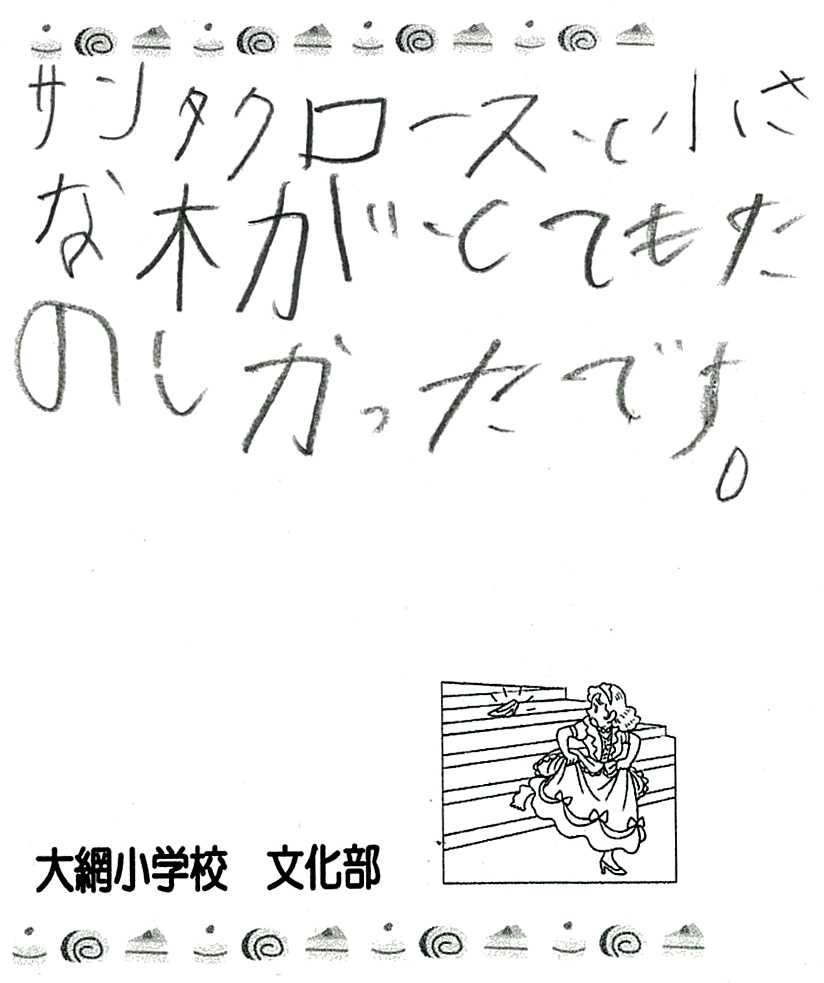 サンタクロースと小さ
な木がとてもた
のしかったです。
大網小学校　文化部